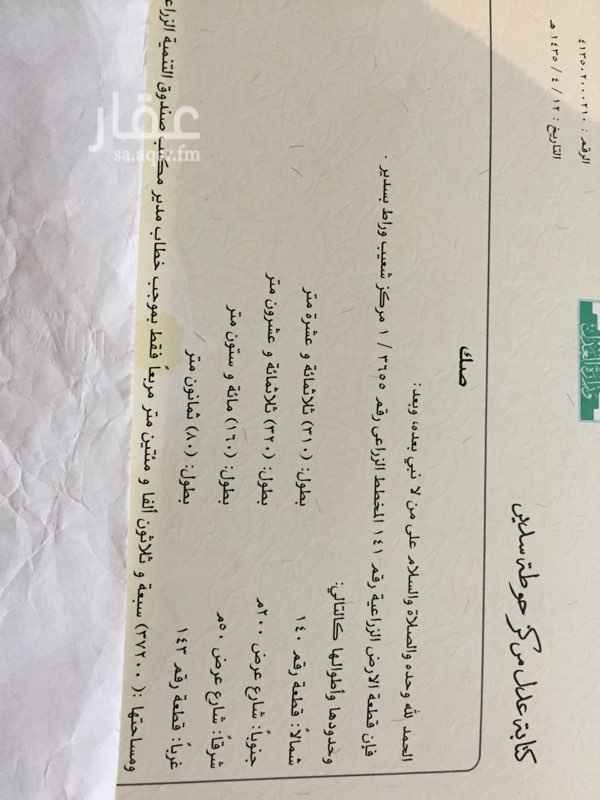 الرقم : ٤١٣٥٠٢٠٠٠٢١٠
التاريخ : ١٢ / ٤ / ١٤٣٥ هـ
وزارة العدل
كتابة عدل مركز حوطة سدير
صك
الحمد لله وحده والصلاة والسلام على من لا نبي بعده، وبعد:
فإن قطعة الارض الزراعية رقم ١٤١ المخطط الزراعى رقم ٣٦٥٥ / ١ مركز شعيب وراط بسدير .
وحدودها وأطوالها كالتالي:
شمالاً: قطعة رقم ١٤٠ بطول: (٣١٠) ثلاثمائة و عشرة متر
جنوباً: شارع عرض ٢٠٠م بطول: (٣٢٠) ثلاثمائة و عشرون متر
شرقاً: شارع عرض ٥٠م بطول: (١٦٠) مائة و ستون متر
غرباً: قطعة رقم ١٤٣ بطول: (٨٠) ثمانون متر
ومساحتها :( ٣٧٢٠٠) سبعة و ثلاثون ألفا و مئتين متر مربعاً فقط بموجب خطاب مدير مكتب صندوق التنمية
عقار
sa.aqar.fm